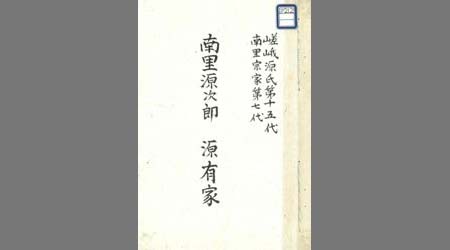 嵯峨源氏第十五代
南里宗家第七代
南里源次郎 源有家